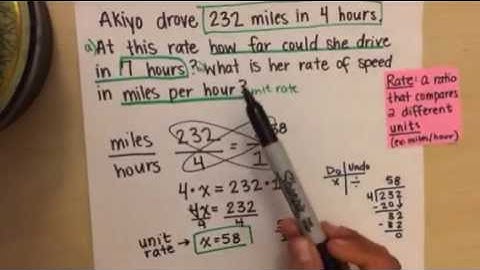 Akiyo drove 232 miles in 4 hours.
a) At this rate how far could she drive
in 7 hours? What is her rate of speed
in miles per hour? unit rate
Rate: a ratio
that compares
2 different
units
(ex. miles/hour)
miles 232 = 58
hours 4 1
4 • x = 232 • 1
4x = 232
4 4
unit
rate → x = 58
Do Undo
x ÷
58
4 232
-20↓
32
-32
0
Sharpie